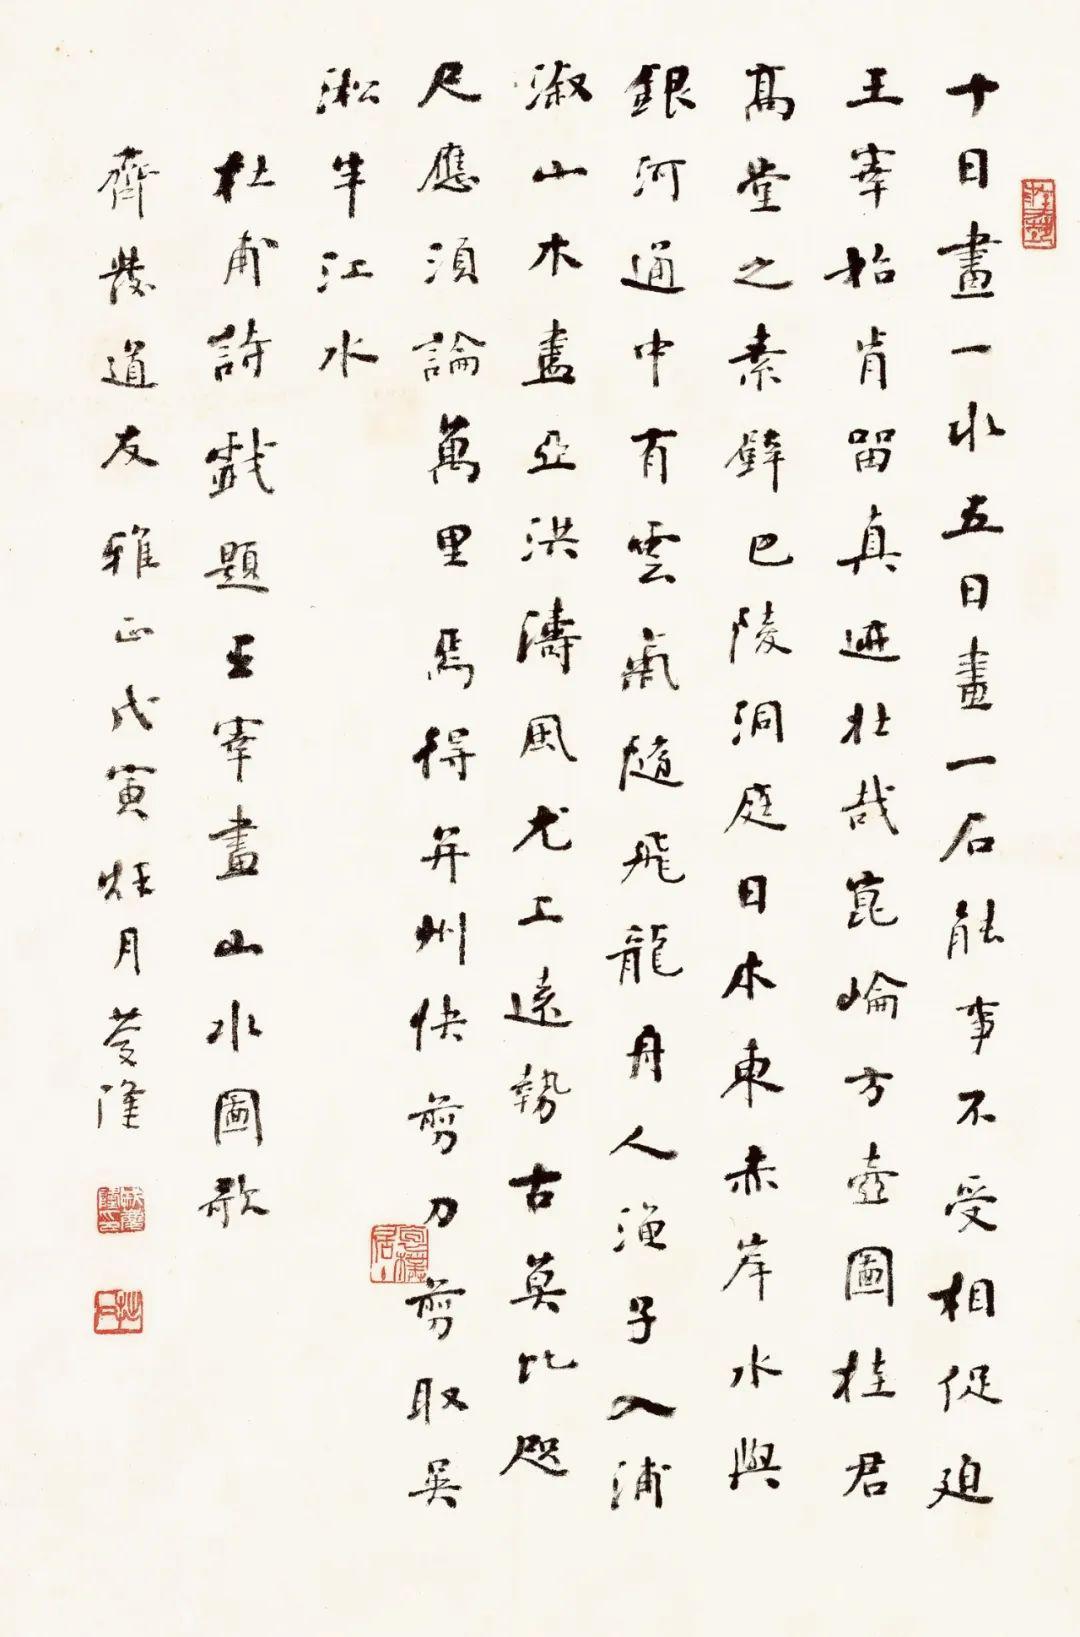 十日畫一水五日畫一石能事不受相促迫
王宰始肯留真迹壯哉崑崘方壺圖挂君
高堂之素壁巴陵洞庭日本東赤岸水與
銀河通中有雲氣隨飛龍舟人漁子入浦
淑山木盡亞洪濤風尤工遠勢古莫比咫
尺應須論萬里焉得并州快剪刀剪取吳
淞半江水
杜甫詩戲題王宰畫山水圖歌
齊道友雅正戊寅月